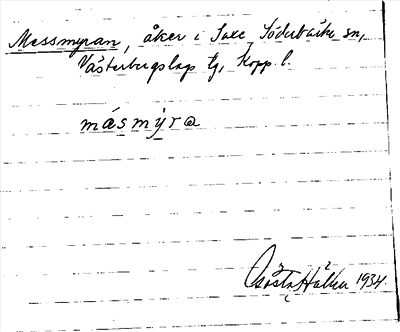 Messmyran, åker i Saxe Söderbärke sn,
Västerbergslags tg, Kopp. l.
másmýra
Gösta Hållen 1934.